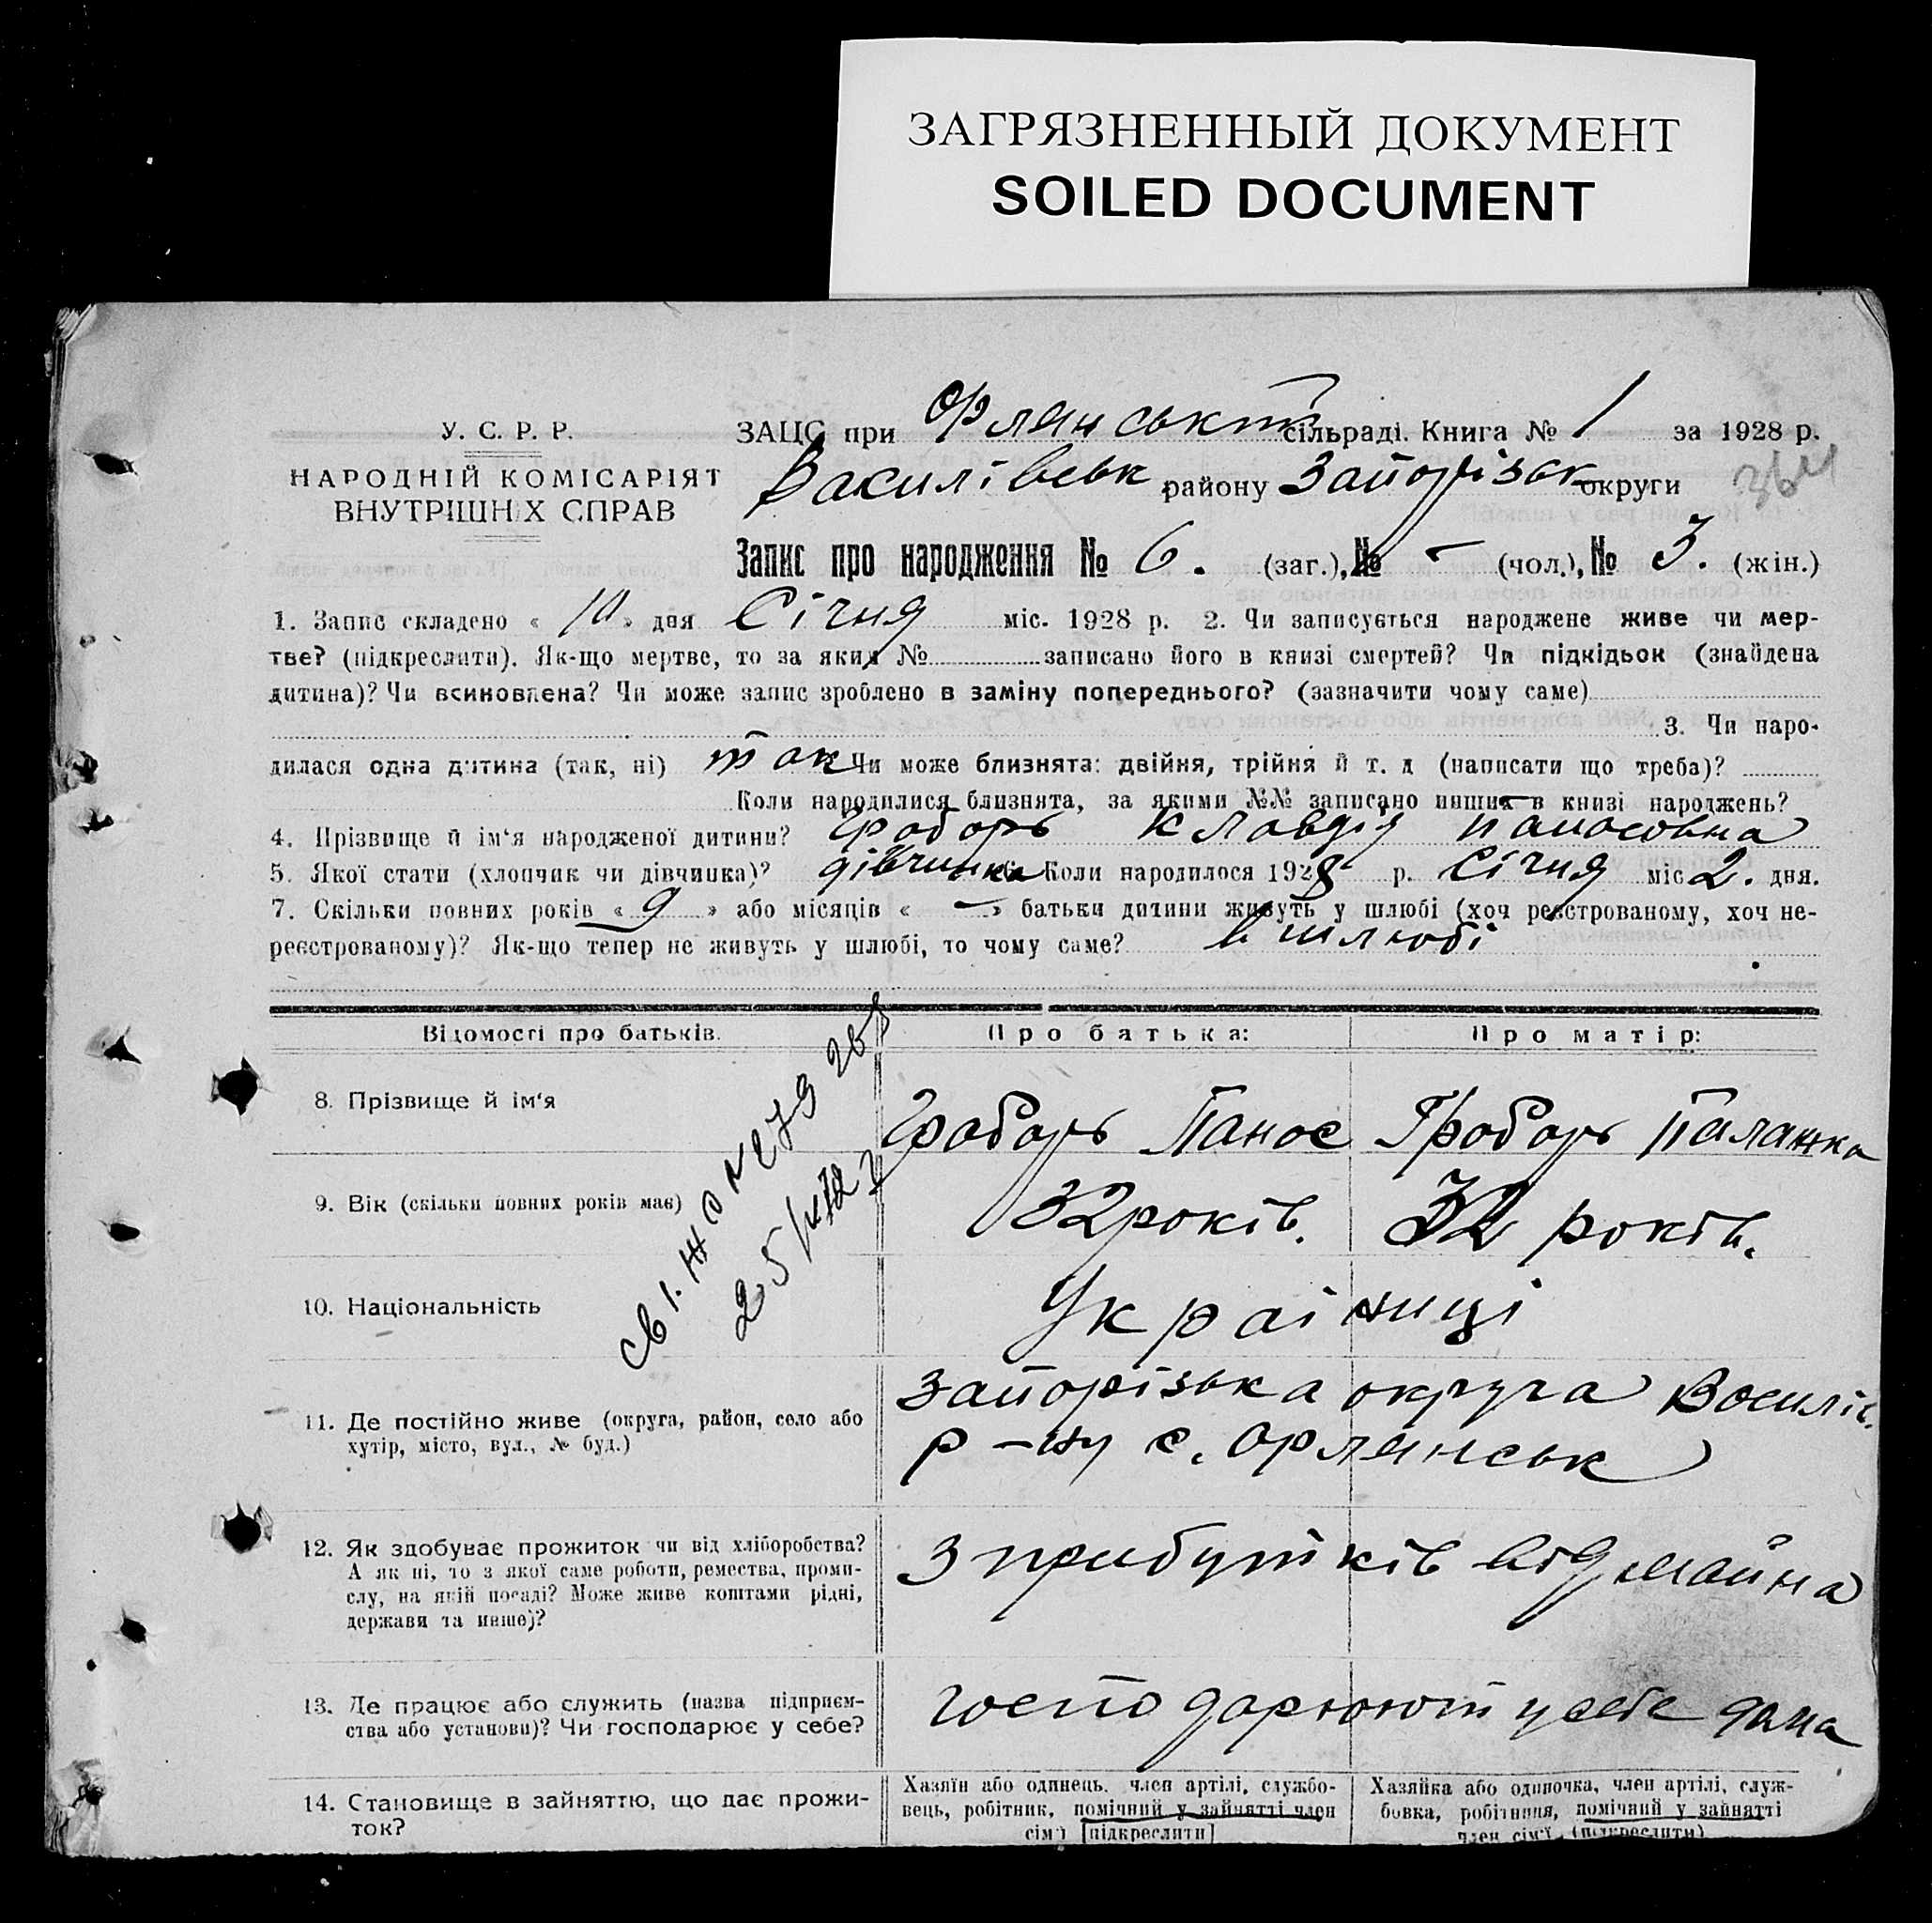 ЗАГРЯЗНЕННЫЙ ДОКУМЕНТ
SOILED DOCUMENT
У. С. Р. Р.
НАРОДНІЙ КОМІСАРІЯТ
ВНУТРІШНІХ СПРАВ
ЗАЦС при Орлянській сільраді. Книга № 1 за 1928 р.
Василівськ району Запорізьк округи
364
Запис про народження № 6. (заг.), № - (чол.), № 3. (жін.)
1. Запис складено « 10 » дня Січня міс. 1928 р. 2. Чи записується народжене живе чи мер-
тве? (підкреслити). Як-що мертве, то за яким № записано його в книзі смертей? Чи підкідьок (знайдена
дитина)? Чи всиновлена? Чи може запис зроблено в заміну попереднього? (зазначити чому саме)
3. Чи наро-
дилася одна дитина (так, ні) так Чи може близнята: двійня, трійня й т. д (написати що треба)?
Коли народилися близнята, за якими №№ записано инших в книзі народжень?
4. Прізвище й ім'я народженої дитини? Грабарь Клавдія Панасовна
5. Якої стати (хлопчик чи дівчинка)? дівчинка 6. Коли народилося 1928 р. Січня міс 2. дня.
7. Скільки повних років « 9 » або місяців « — » батьки дитини живуть у шлюбі (хоч реєстрованому, хоч не-
реєстрованому)? Як-що тепер не живуть у шлюбі, то чому саме? в шлюбі
Відомості про батьків. Про батька: Про матір:
8. Прізвище й ім'я Грабарь Панас Грабарь Палажка
9. Вік (скільки повних років має) 32 років. 32 років.
10. Національність Украінці
11. Де постійно живе (округа, район, село або
хутір, місто, вул., № буд.)
Запорізька округа Василів.
р-ну с. Орлянськ
12. Як здобуває прожиток чи від хліборобства?
А як ні, то з якої саме роботи, ремества, проми-
слу, на якій посаді? Може живе коштами рідні,
держави та инше)?
З прибутків від майна
13. Де працює або служить (назва підприєм-
ства або установи)? Чи господарює у себе?
господарюют у себе дома
14. Становище в зайняттю, що дає прожи-
ток?
Хазяїн або одинець, член артілі, службо-
вець, робітник, помічний у зайнятті член
сім'ї [підкреслити]
Хазяйка або одиночка, член артілі, служ-
бовка, робітниця, помічний у зайнятті
член сім'ї (підкреслити)